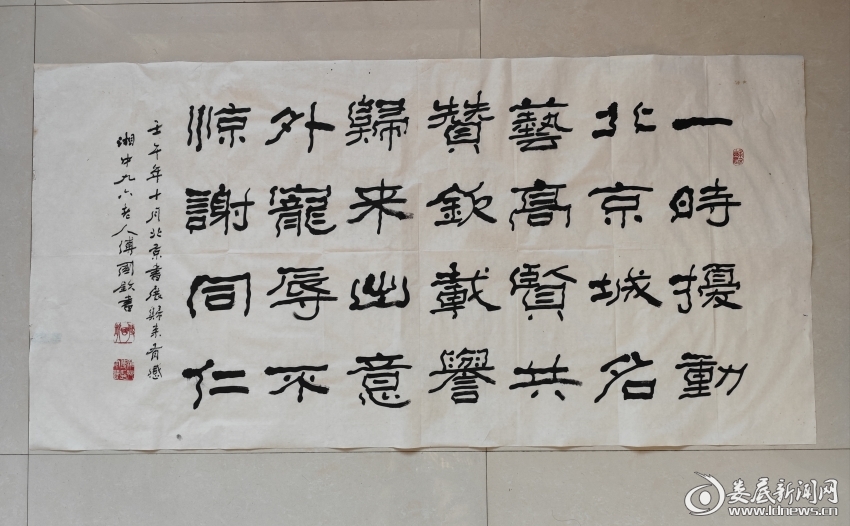 一時擾動
北京城名
藝高賢共
贊欽載譽
歸来出意
外寵辱不
惊謝同仁
壬午年十月北京書展歸来有感
湘中九六老人傅國欽書
娄底新闻网
www.ldnews.cn